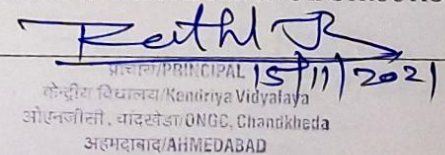 15/11/2021
प्राचार्य/PRINCIPAL
केन्द्रीय विद्यालय/Kendriya Vidyalaya
ओएनजीसी, चांदखेडा/ONGC, Chandkheda
अहमदाबाद/AHMEDABAD